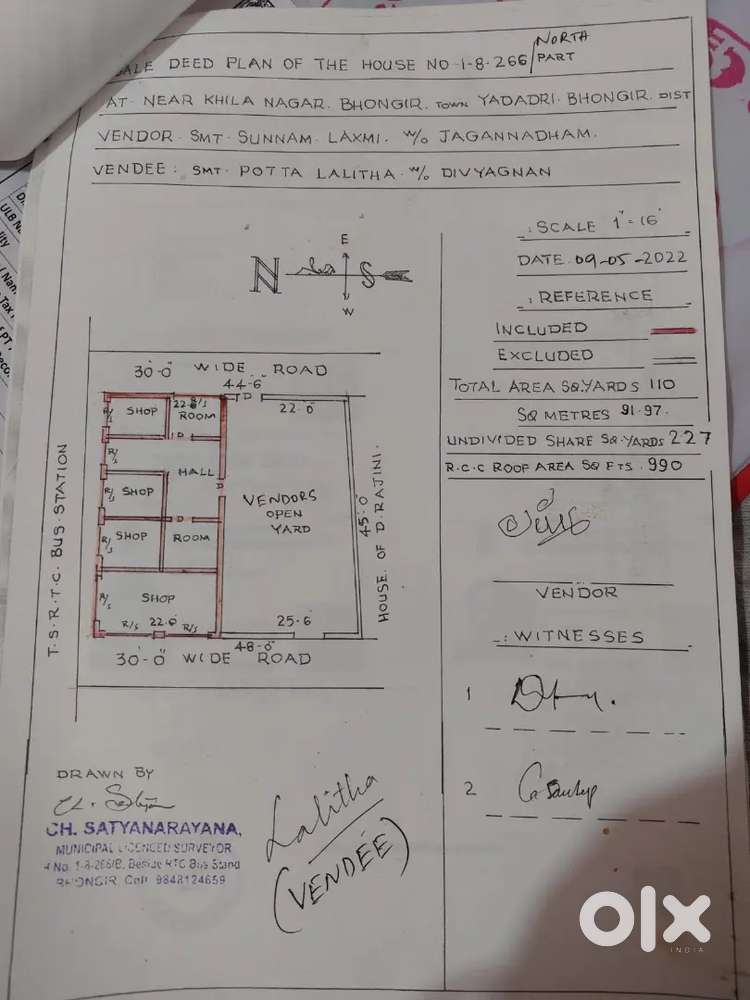 SALE DEED PLAN OF THE HOUSE NO-1-8-266/NORTH PART
AT- NEAR KHILA NAGAR. BHONGIR. TOWN YADADRI. BHONGIR. DIST
VENDOR- SMT- SUNNAM. LAXMI. W/O JAGANNADHAM.
VENDEE: SMT- POTTA LALITHA- W/O DIVYAGNAN
E
N S
W
-: SCALE 1"=16'
DATE. 09-05-2022
-: REFERENCE
INCLUDED
EXCLUDED
TOTAL AREA SQ.YARDS 110
SQ METRES 91.97.
UNDIVIDED SHARE SQ.YARDS 227
R.C.C ROOF AREA SQ FTS. 990
30'-0" WIDE ROAD
44-6"
D
22.0"
R/S
SHOP
22.6
R/S
ROOM
D
R/S
HALL
D
R/S
SHOP
D
R/S
SHOP
ROOM
R/S
SHOP
R/S
22.6
R/S
VENDORS
OPEN
YARD
45'.0"
25.6
48-0"
30'-0" WIDE ROAD
T.S.R.T.C. BUS.STATION
HOUSE. OF D.RAJINI.
VENDOR
-: WITNESSES
1
2
DRAWN BY
CH. SATYANARAYANA,
MUNICIPAL LICENCED SURVEYOR
H No. 1-8-266/B, Beside RTC Bus Stand
BHONGIR. Cell: 9848124659
Lalitha
(VENDÉE)
olx
INDIA